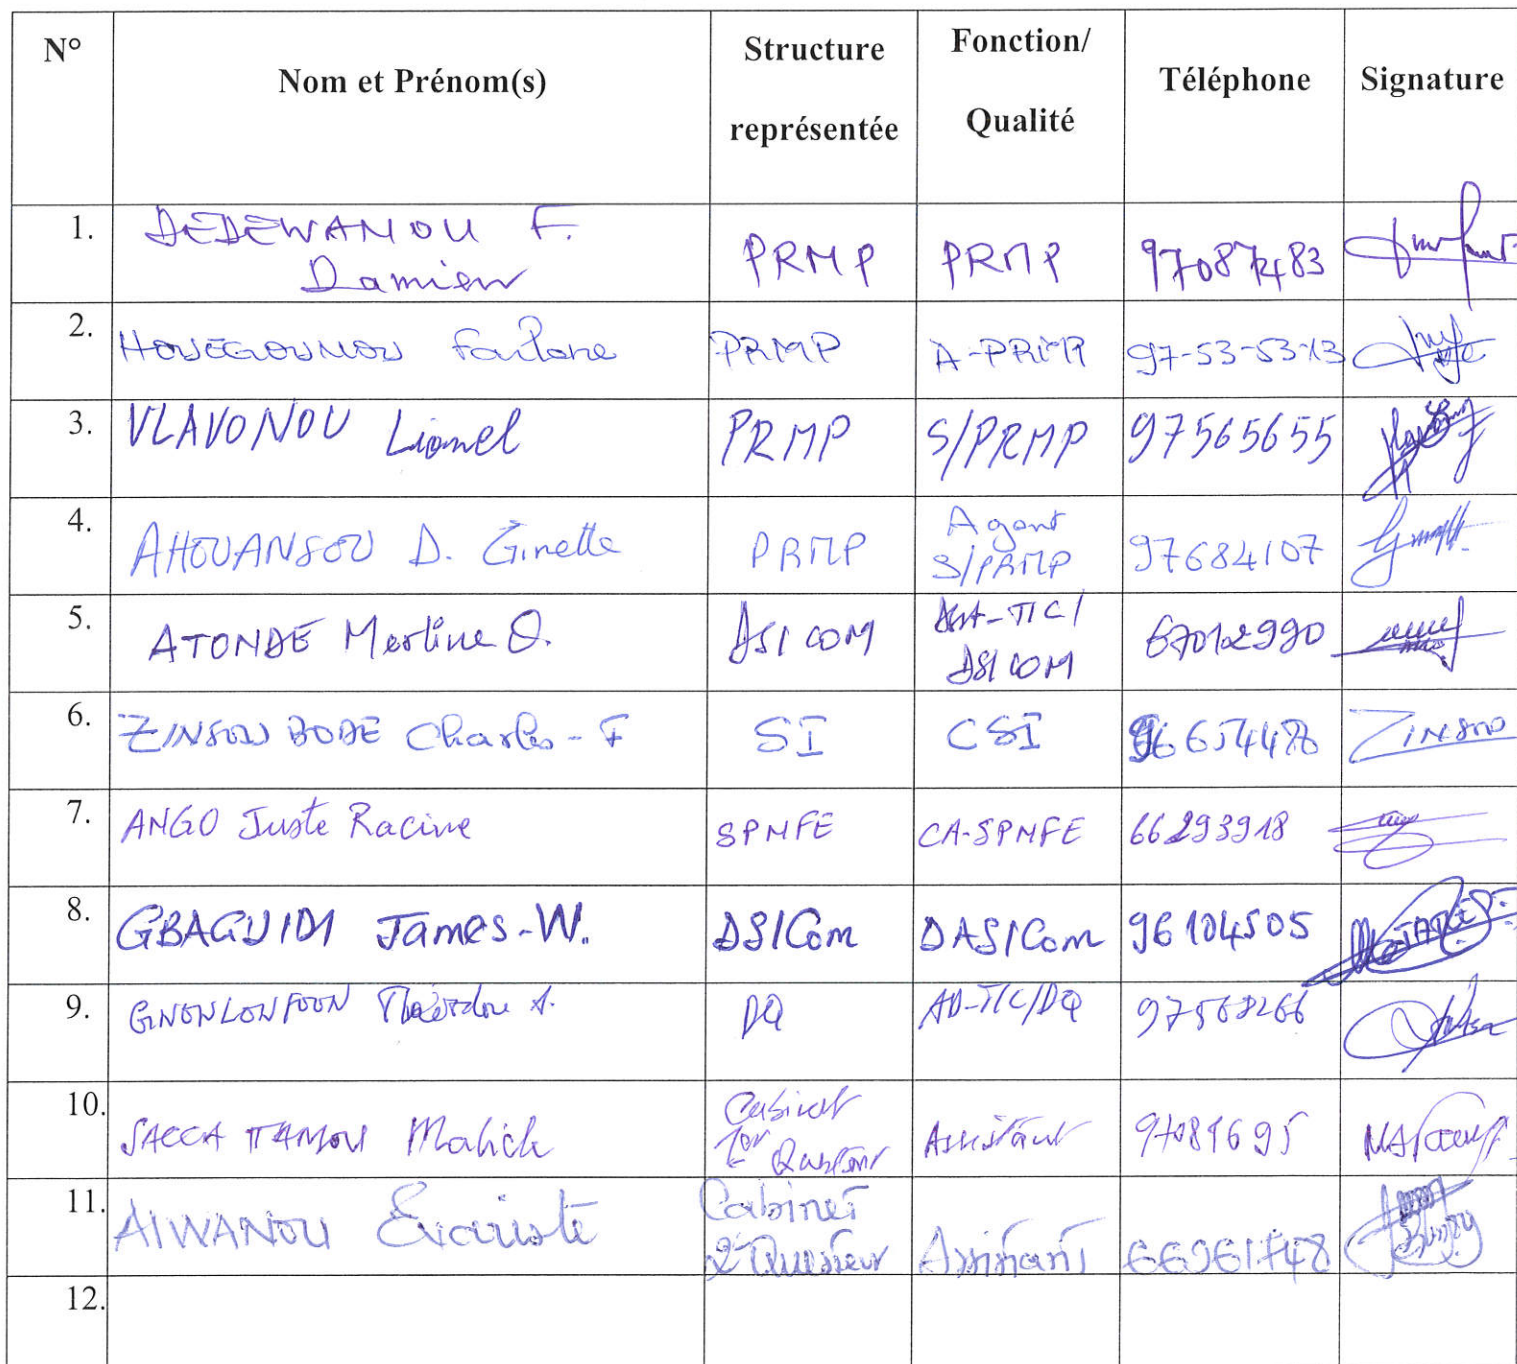 N° Nom et Prénom(s) Structure représentée Fonction/ Qualité Téléphone Signature
1. DEDEWANOU F. Damien PRMP PRMP 97087483
2. HOUEGOUNOU PRMP A-PRMP 97-53-53-13
3. VLAVONOU Lionel PRMP S/PRMP 97565655
4. AHOUANSOU D. Ginette PRMP Agent S/PRMP 97684107
5. ATONDE Merline O. DSICOM TIC/ DSICOM 67012990
6. ZINSOU BODE Charles-F SI CSI ZINSOU
7. ANGO Juste Racine SPMFE CA-SPMFE 66293918
8. GBAGUIDI James-W. DSICom DASICom 96104505
9. GNONLONFOUN A. DQ AD-TIC/DQ 97568266
10. SACCA TAMOU Malick Cabinet 1er Questeur Assistant 97081695
11. AIWANOU Evariste Cabinet 2e Questeur Assistant 66961748
12.